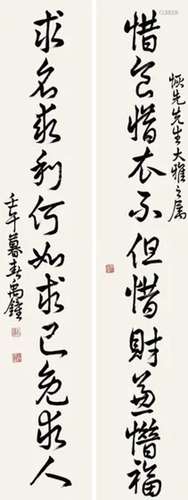 恢先先生大雅之属
惜食惜衣不但惜財兼惜福
求名求利何如求己免求人
壬午暮春禹鐘